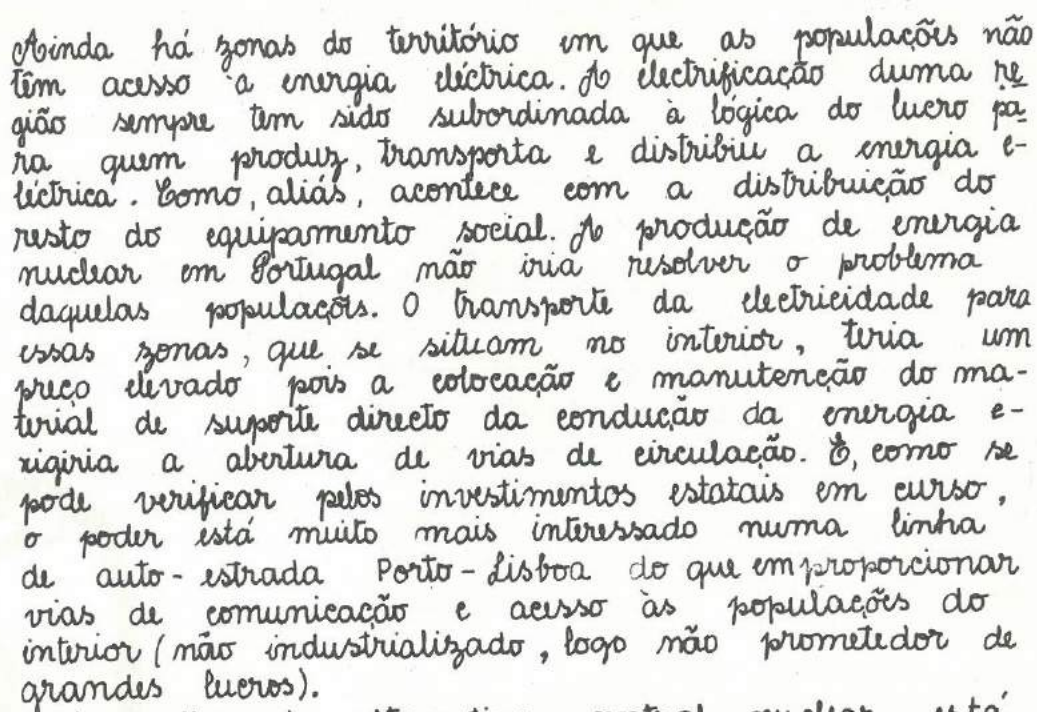 Ainda há zonas do território em que as populações não
têm acesso à energia eléctrica. A electrificação duma re
gião sempre tem sido subordinada à lógica do lucro pa
ra quem produz, transporta e distribiu a energia e-
léctrica. Como, aliás, acontece com a distribuição do
resto do equipamento social. A produção de energia
nuclear em Portugal não iria resolver o problema
daquelas populaçõs. O transporte da electricidade para
essas zonas, que se situam no interior, teria um
preço elevado pois a colocação e manutenção do ma-
terial de suporte directo da condução da energia e-
xigiria a abertura de vias de circulação. E, como se
pode verificar pelos investimentos estatais em curso,
o poder está muito mais interessado numa linha
de auto-estrada Porto-Lisboa do que em proporcionar
vias de comunicação e acesso às populações do
interior (não industrializado, logo não prometedor de
grandes lucros).
está